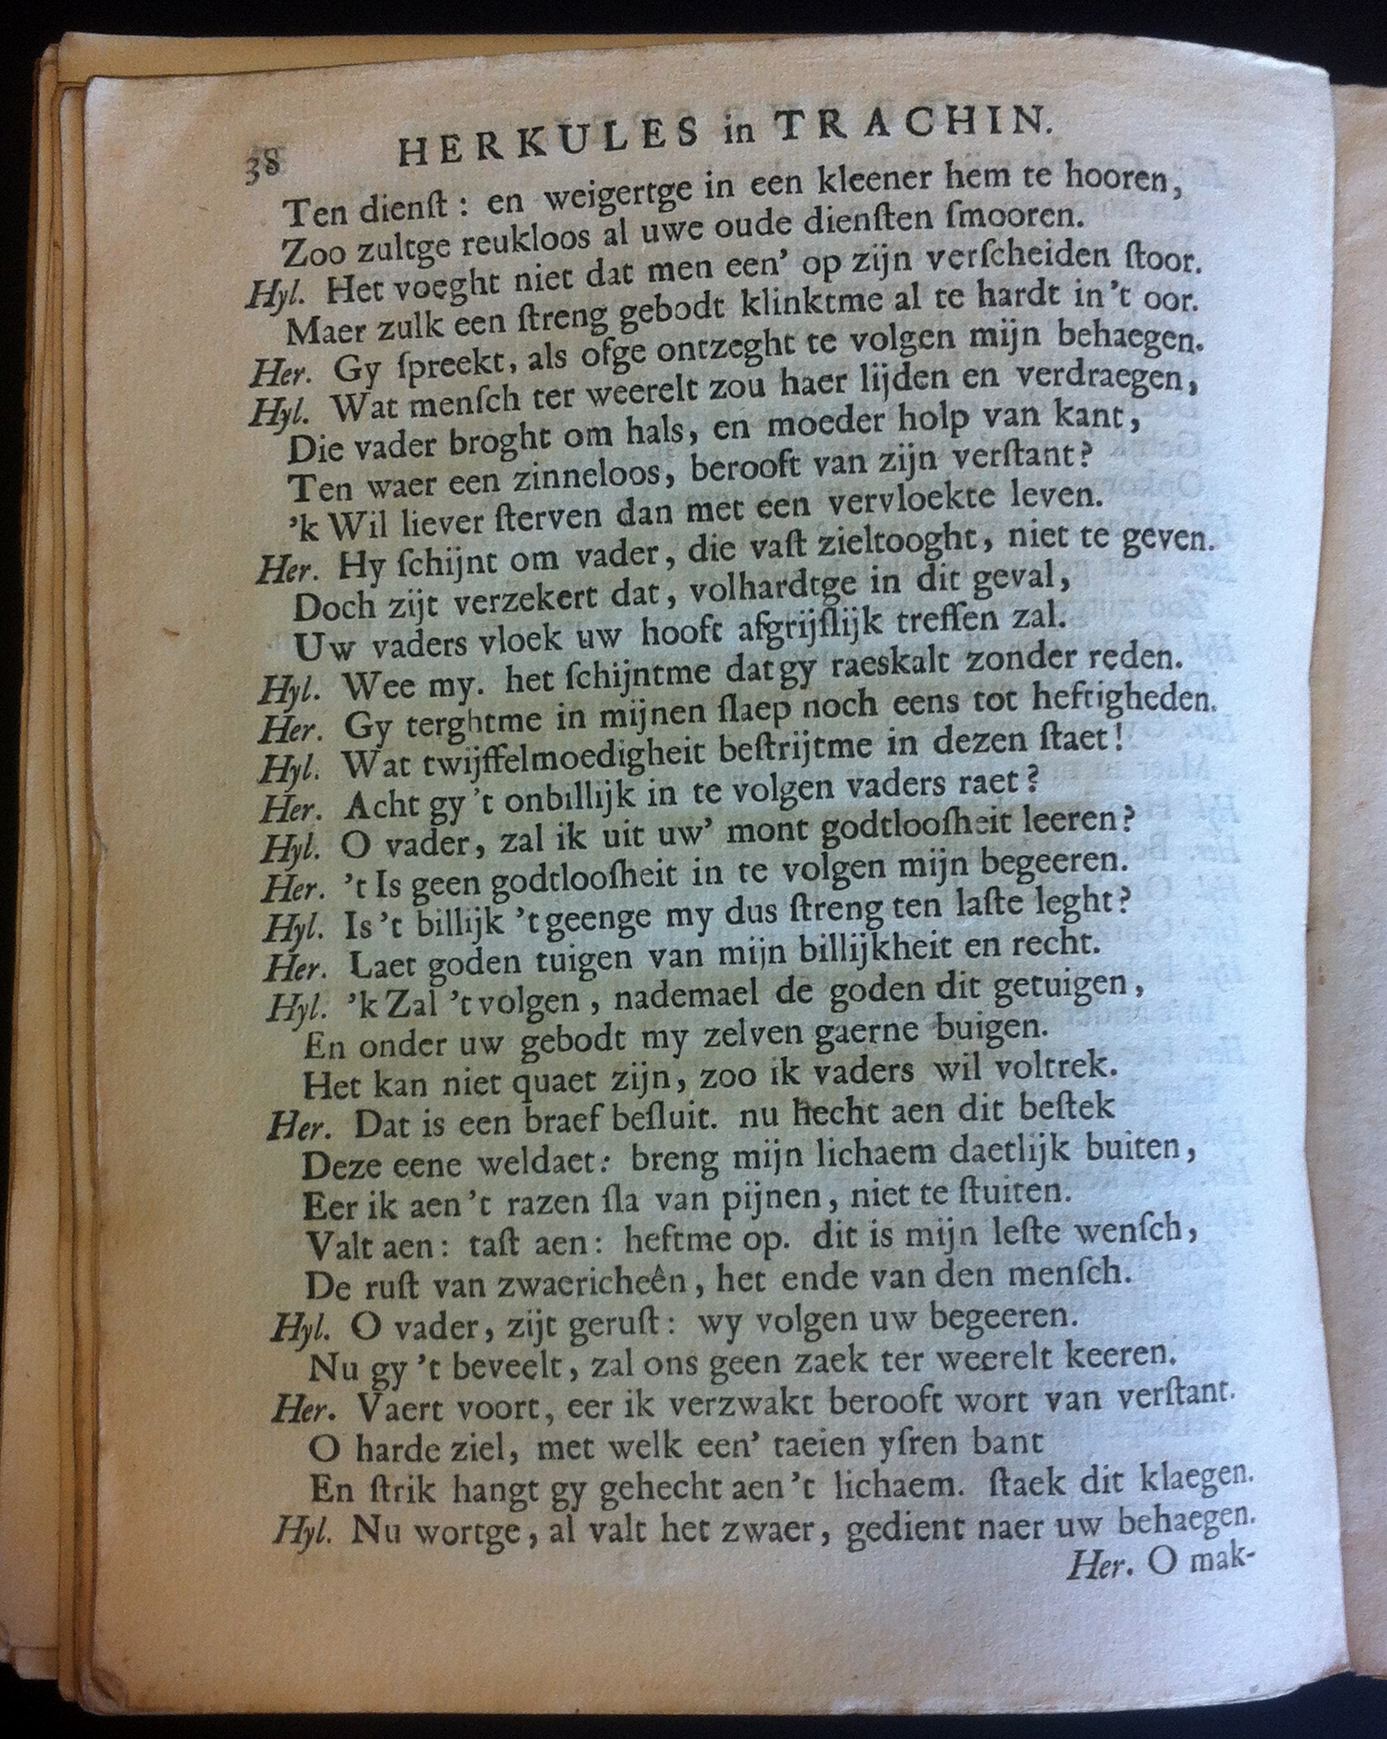 38 HERKULES in TRACHIN.
Ten dienſt : en weigertge in een kleener hem te hooren,
Zoo zultge reukloos al uwe oude dienſten ſmooren.
Hyl. Het voeght niet dat men een' op zijn verſcheiden ſtoor.
Maer zulk een ſtreng gebodt klinktme al te hardt in 't oor.
Her. Gy ſpreekt, als ofge ontzeght te volgen mijn behaegen.
Hyl. Wat menſch ter weerelt zou haer lijden en verdraegen,
Die vader broght om hals, en moeder holp van kant,
Ten waer een zinneloos, berooft van zijn verſtant?
'k Wil liever ſterven dan met een vervloekte leven.
Her. Hy ſchijnt om vader, die vaſt zieltooght, niet te geven.
Doch zijt verzekert dat, volhardtge in dit geval,
Uw vaders vloek uw hooft afgrijſlijk treffen zal.
Hyl. Wee my. het ſchijntme dat gy raeskalt zonder reden.
Her. Gy terghtme in mijnen ſlaep noch eens tot heftigheden.
Hyl. Wat twijffelmoedigheit beſtrijtme in dezen ſtaet!
Her. Acht gy 't onbillijk in te volgen vaders raet?
Hyl. O vader, zal ik uit uw' mont godtlooſheit leeren?
Her. 't Is geen godtlooſheit in te volgen mijn begeeren.
Hyl. Is 't billijk 't geenge my dus ſtreng ten laſte leght?
Her. Laet goden tuigen van mijn billijkheit en recht.
Hyl. 'k Zal 't volgen, nademael de goden dit getuigen,
En onder uw gebodt my zelven gaerne buigen.
Het kan niet quaet zijn, zoo ik vaders wil voltrek.
Her. Dat is een braef beſluit. nu hecht aen dit beſtek
Deze eene weldaet: breng mijn lichaem daetlijk buiten,
Eer ik aen 't razen ſla van pijnen, niet te ſtuiten.
Valt aen: taſt aen: heftme op. dit is mijn leſte wenſch,
De ruſt van zwaericheên, het ende van den menſch.
Hyl. O vader, zijt geruſt: wy volgen uw begeeren.
Nu gy 't beveelt, zal ons geen zaek ter weerelt keeren.
Her. Vaert voort, eer ik verzwakt berooft wort van verſtant.
O harde ziel, met welk een' taeien yſren bant
En ſtrik hangt gy gehecht aen 't lichaem. ſtaek dit klaegen.
Hyl. Nu wortge, al valt het zwaer, gedient naer uw behaegen.
Her. O mak-